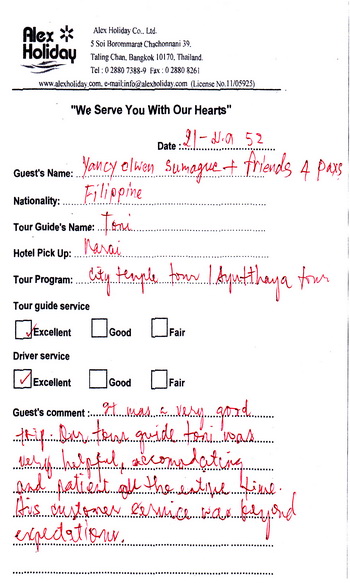 Alex
Holiday
Alex Holiday Co., Ltd.
5 Soi Borommarat Chachonnani 39.
Taling Chan, Bangkok 10170, Thailand.
Tel : 0 2880 7388-9 Fax : 0 2880 8261
www.alexholiday.com, e-mail:info@alexholiday.com (License No.11/05925)
"We Serve You With Our Hearts"
Date : 21-
52
Guest's Name: Yancy Olwen Sumague + friends 4 paxs
Nationality: Filippine
Tour Guide's Name: Toni
Hotel Pick Up:
Tour Program: City temple tour / Ayutthaya tour
Tour guide service
✓ Excellent Good Fair
Driver service
✓ Excellent Good Fair
Guest's comment : It was a very good
trip. Our tour guide toni was
very helpful, accomodating
and patient all the entire time.
His customer service was beyond
expectations.